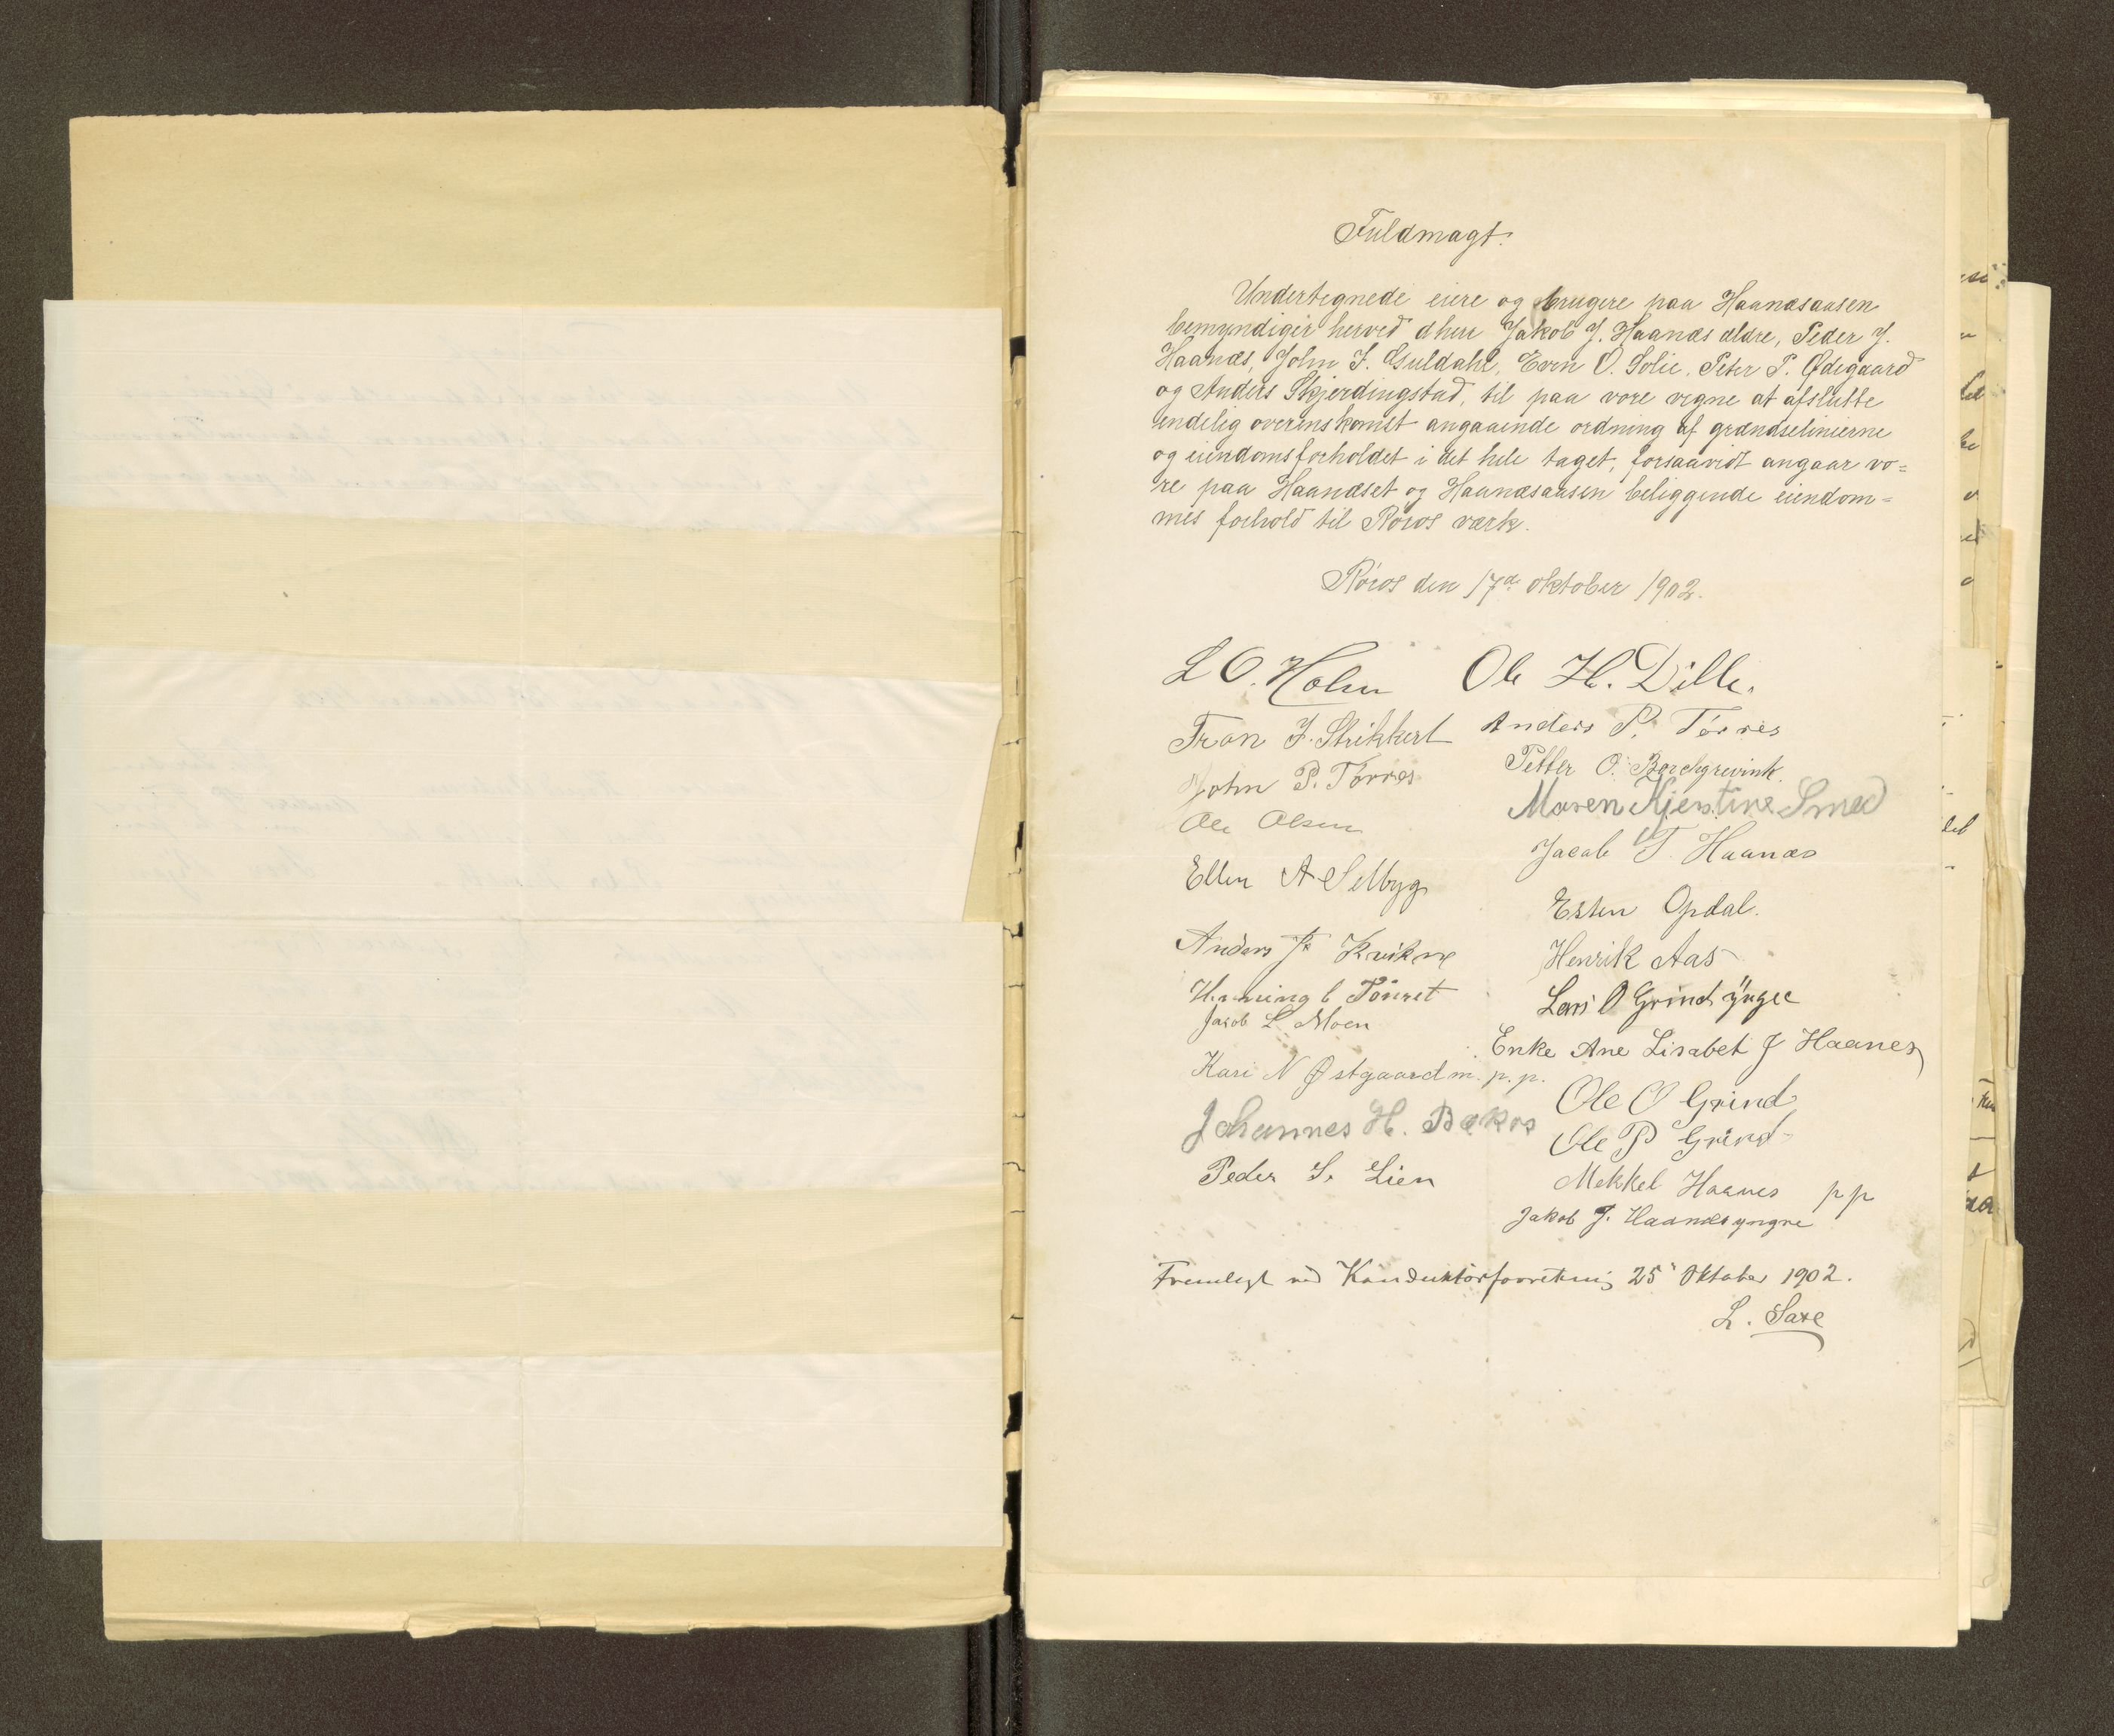 Fuldmagt.
Undertegnede eiere og brugere paa Haanæsaasen
bemyndiger herved dhrr Jakob J. Haanæs ældre, Peder J.
Haanæs, John J. Guldahl, Even O. Solie, Peter P. Ødegaard
og Anders Skjerdingstad, til paa vore vegne at afslutte
endelig overenskomst angaaende ordning af grændselinierne
og eiendomsforholdet i det hele taget, forsaavidt angaar vo=
re paa Haanæset og Haanæsaasen beliggende eiendom=
mes forhold til Røros værk.
Røros den 17de oktober 1902.
L O. Holm Ole H. Dille.
Tron J. Strikkert Anders P. Tørres
John P. Tørres Petter O. Borchgrevink.
Ole Olsen Maren Kjerstine Smed
Jacob T. Haanæs
Ellen A Selbyg
Esten Opdal.
Anders Kvikne
Henrik Aas
Henning Tønset
Lars O Grind yngre
Jacob L Moen
Enke Ane Lisabet J Haanes
Kari N Østgaard m. p. p.
Ole O Grind
Johannes H. Bækos
Ole P Grind
Peder S. Lien
Mekkel Haanes pp
Jakob J. Haanæs yngre
Fremlagt ved Konduktørforretning 25' Oktober 1902.
L. Saxe